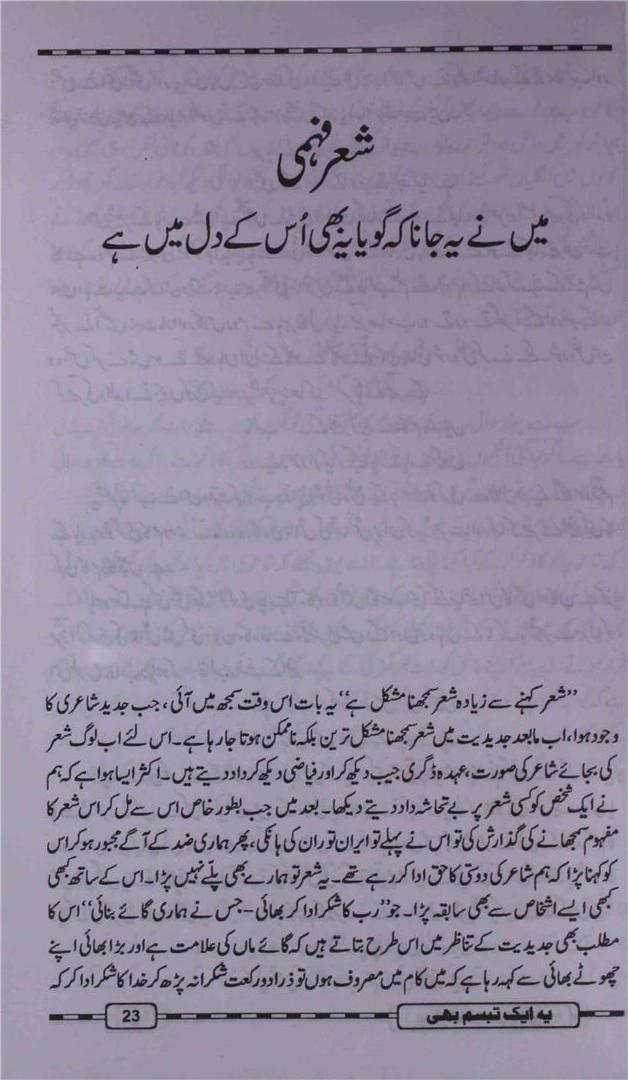 شعر فہمی
میں نے یہ جانا کہ گویا یہ بھی اُس کے دل میں ہے
”شعر کہنے سے زیادہ شعر سمجھنا مشکل ہے“ یہ بات اس وقت سمجھ میں آئی، جب جدید شاعری کا
وجود ہوا، اب مابعد جدیدیت میں شعر سمجھنا مشکل ترین بلکہ ناممکن ہوتا جا رہا ہے۔ اس لئے اب لوگ شعر
کی بجائے شاعر کی صورت، عہدہ ڈگری جیب دیکھ کر اور فیاضی دیکھ کر داد دیتے ہیں۔ اکثر ایسا ہوا ہے کہ ہم
نے ایک شخص کو کسی شعر پر بے تحاشہ داد دیتے دیکھا۔ بعد میں جب بطور خاص اس سے مل کر اس شعر کا
مفہوم سمجھانے کی گذارش کی تو اس نے پہلے تو ایران توران کی ہانکی، پھر ہماری ضد کے آگے مجبور ہو کر اس
کو کہنا پڑا کہ ہم شاعر کی دوستی کا حق ادا کر رہے تھے۔ یہ شعر تو ہمارے بھی پلّے نہیں پڑا۔ اس کے ساتھ کبھی
کبھی ایسے اشخاص سے بھی سابقہ پڑا۔ جو ”رب کا شکر ادا کر بھائی – جس نے ہماری گائے بنائی“ اس کا
مطلب بھی جدیدیت کے تناظر میں اس طرح بتاتے ہیں کہ گائے ماں کی علامت ہے اور بڑا بھائی اپنے
چھوٹے بھائی سے کہہ رہا ہے کہ میں کام میں مصروف ہوں تو ذرا دو رکعت شکرانہ پڑھ کر خدا کا شکر ادا کر کہ
یہ ایک تبسم بھی
23